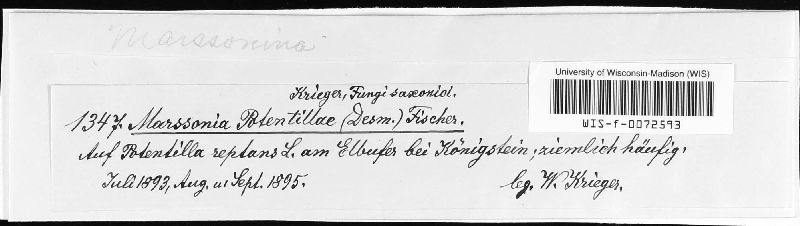 Marssonina
Krieger, Fungi saxonici.
University of Wisconsin-Madison (WIS)
WIS-f-0072593
1347. Marssonia Potentillae (Desm.) Fischer.
Auf Potentilla reptans L. am Elbufer bei Königstein, ziemlich häufig.
Juli 1893, Aug. u. Sept. 1895.
leg. W. Krieger.